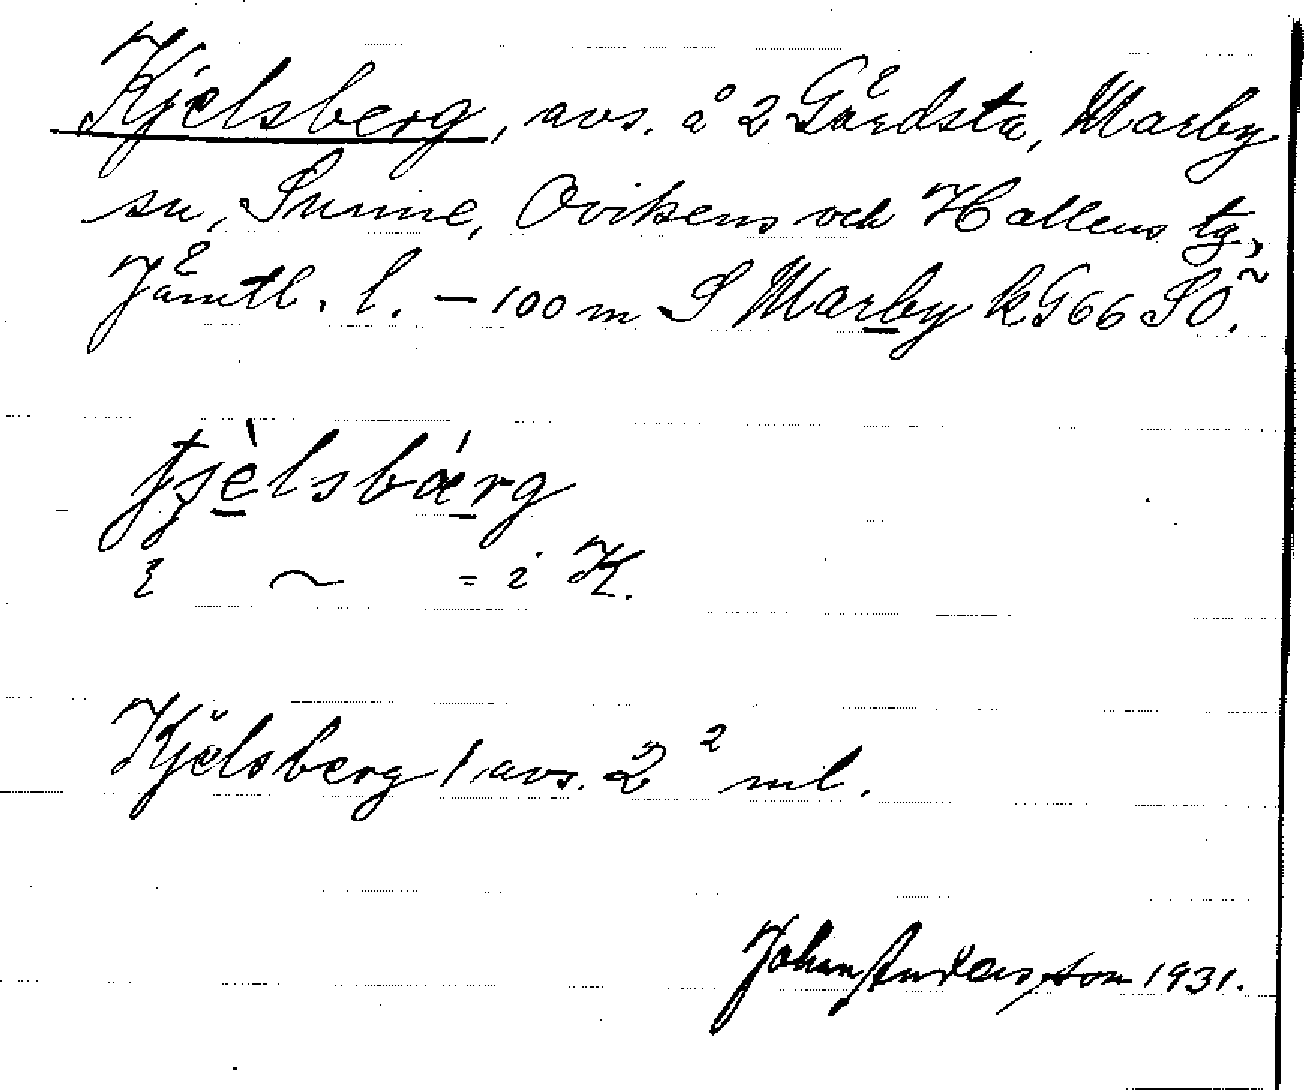 Kjelsberg, avs. å 2 Gårdsta, Marby
sn, Sunne, Ovikens och Hallens tg,
Jämtl. l. – 100 m S Marby k G66 SÖ.
~ = i K.
Kjelsberg 1 avs. 2 ² ml.
Johan Andersson 1931.